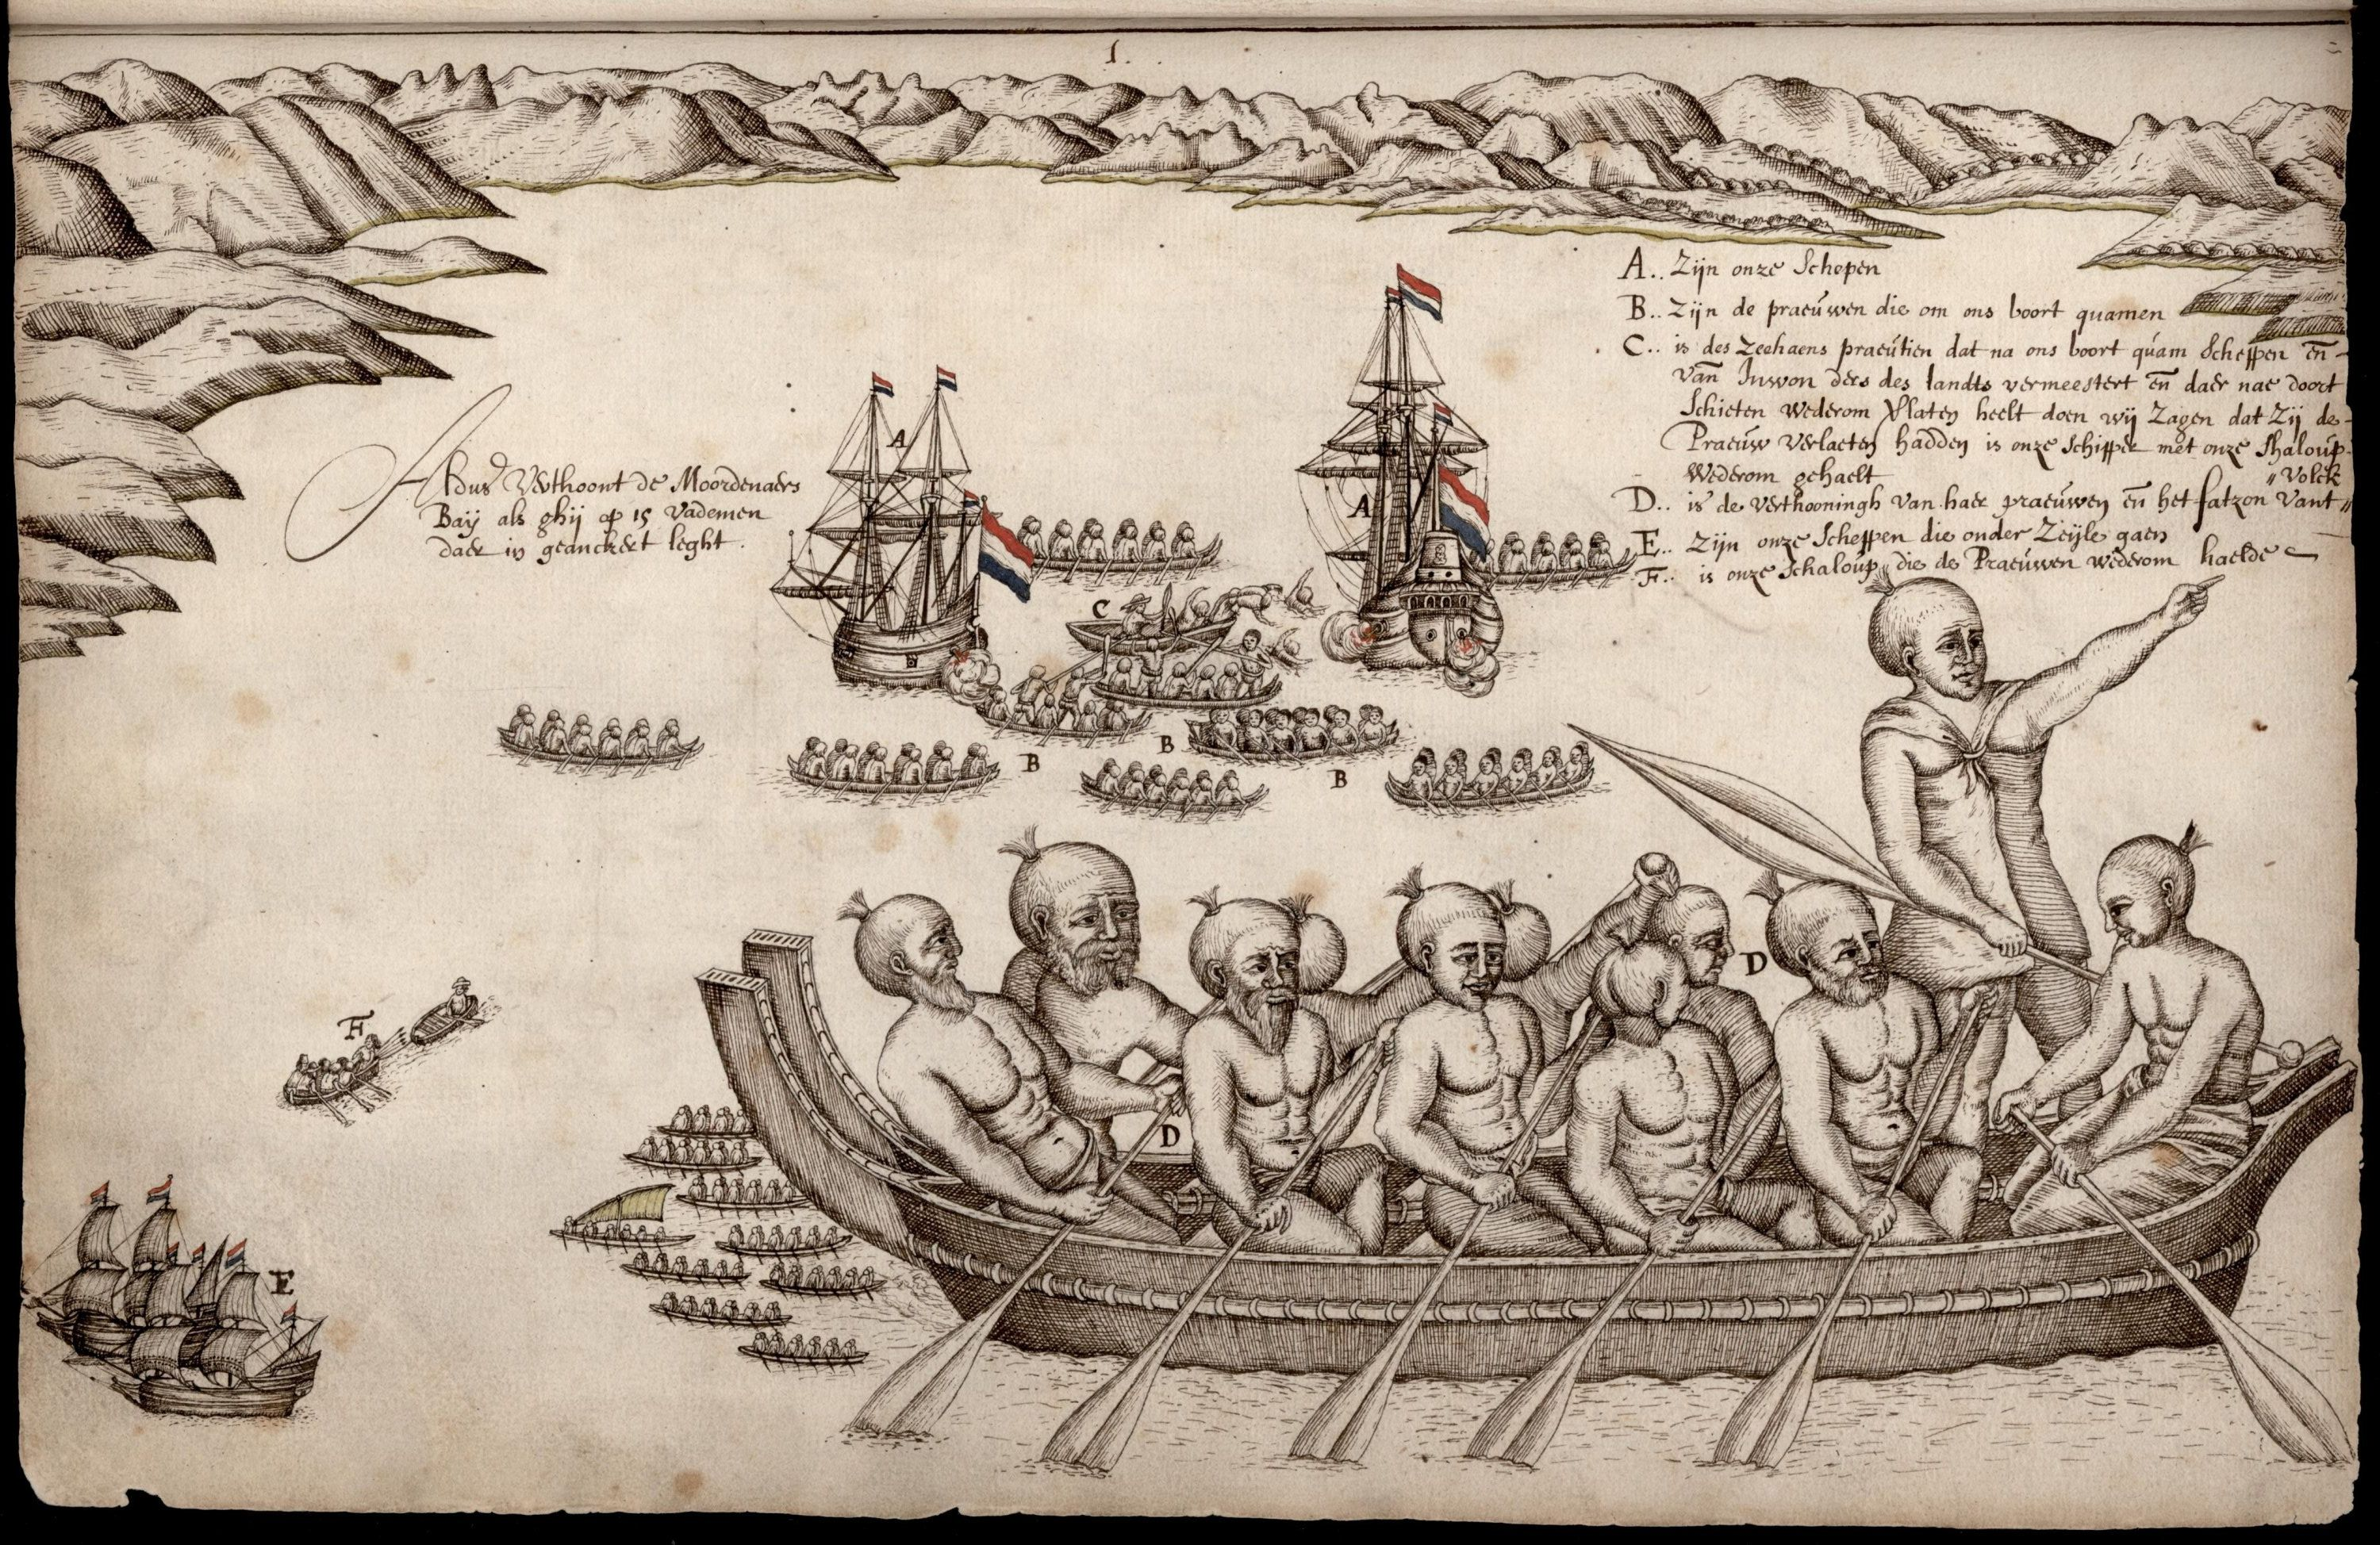 1.
A.. Zijn onze Schepen
B.. Zijn de praeúwen die om ons boort quamen
C.. is des Zeehaens praeútien dat na ons boort quam Scheppen en̄
van Inwon ders des landts vermeestert en̄ daer nae doort
Schieten wederom Vlaten heelt doen wij Zagen dat Zij de
Praeúw verlaeten hadden is onze Schipper met onze Shaloúp
Wederom gehaelt „Volck
D.. is de verthooningh van haer praeúwen en̄ het fatzon vant „
E.. Zijn onze Scheppen die onder Zeijle gaen
F.. is onze Schaloúp die de Praeúwen wederom haelde
Aldus Verthoont de Moordenaers
Baij als ghij op 15 vademen
daer in geanckert leght.
A
A
C
B
B
B
D
D
F
E